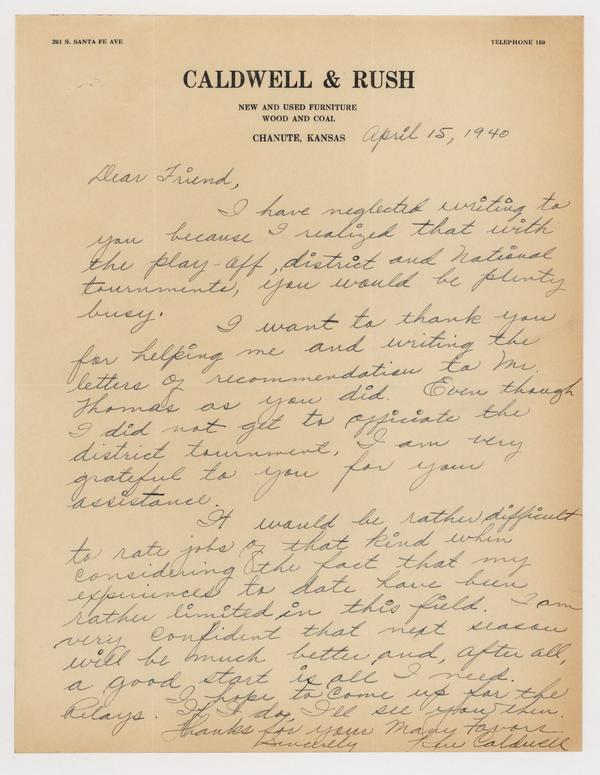 201 S. SANTA FE AVE
TELEPHONE 160
CALDWELL & RUSH
NEW AND USED FURNITURE
WOOD AND COAL
CHANUTE, KANSAS April 15, 1940
Dear Friend,
I have neglected writing to
you because I realized that with
the play-off, district and National
tournments, you would be plenty
busy.
I want to thank you
for helping me and writing the
letters of recommendation to Mr.
Thomas as you did. Even though
I did not get to officiate the
district tournment, I am very
grateful to you for your
assistance.
It would be rather difficult
to rate jobs of that kind when
considering the fact that my
experiences to date have been
rather limited in this field. I am
very confident that next season
will be much better and, after all,
a good start is all I need.
I hope to come up for the
Relays. If I do, I'll see you then.
Thanks for your Many Favors
Sincerely Ken Caldwell